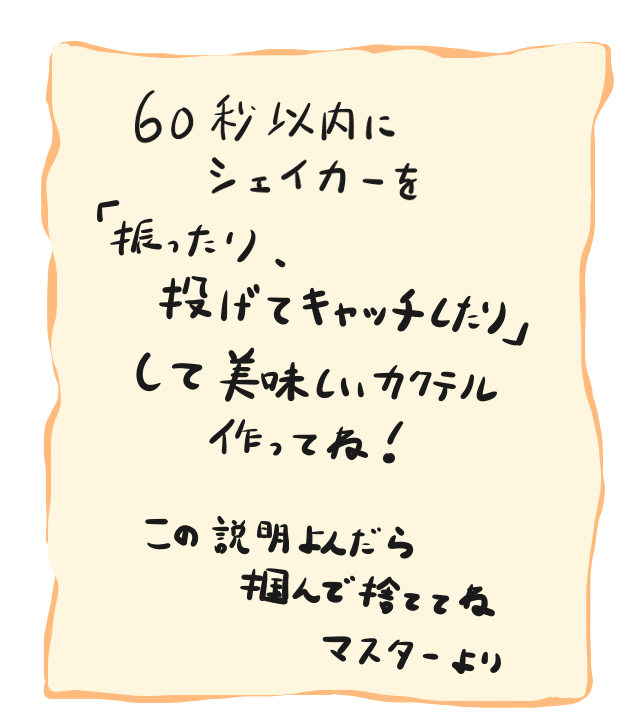 60秒以内に
シェイカーを
「振ったり、
投げてキャッチしたり」
して美味しいカクテル
作ってね！
この説明よんだら
掴んで捨ててね
マスターより